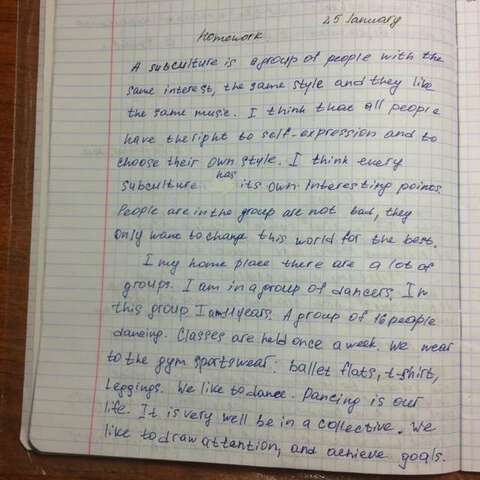 25 January
Homework
A subculture is a group of people with the
same interest, the same style and they like
the same music. I think that all people
have the right to self-expression and to
choose their own style. I think every
subculture has its own interesting poines.
People are in the group are not bad, they
only want to change this world for the best.
I my home place there are a lot of
groups. I am in a group of dancers. In
this group I am 11 years. A group of 16 people
dancing. Classes are held once a week. We wear
to the gym sportswear: ballet flats, t-shirt,
Leggings. We like to dance. Dancing is our
life. It is very well be in a collective. We
like to draw attention, and achieve goals.